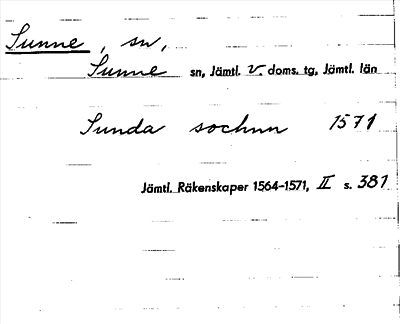 Sunne, sn,
Sunne sn, Jämtl. v. doms. tg, Jämtl. län
Sunda sochnn 1571
Jämtl. Räkenskaper 1564-1571, II s. 381